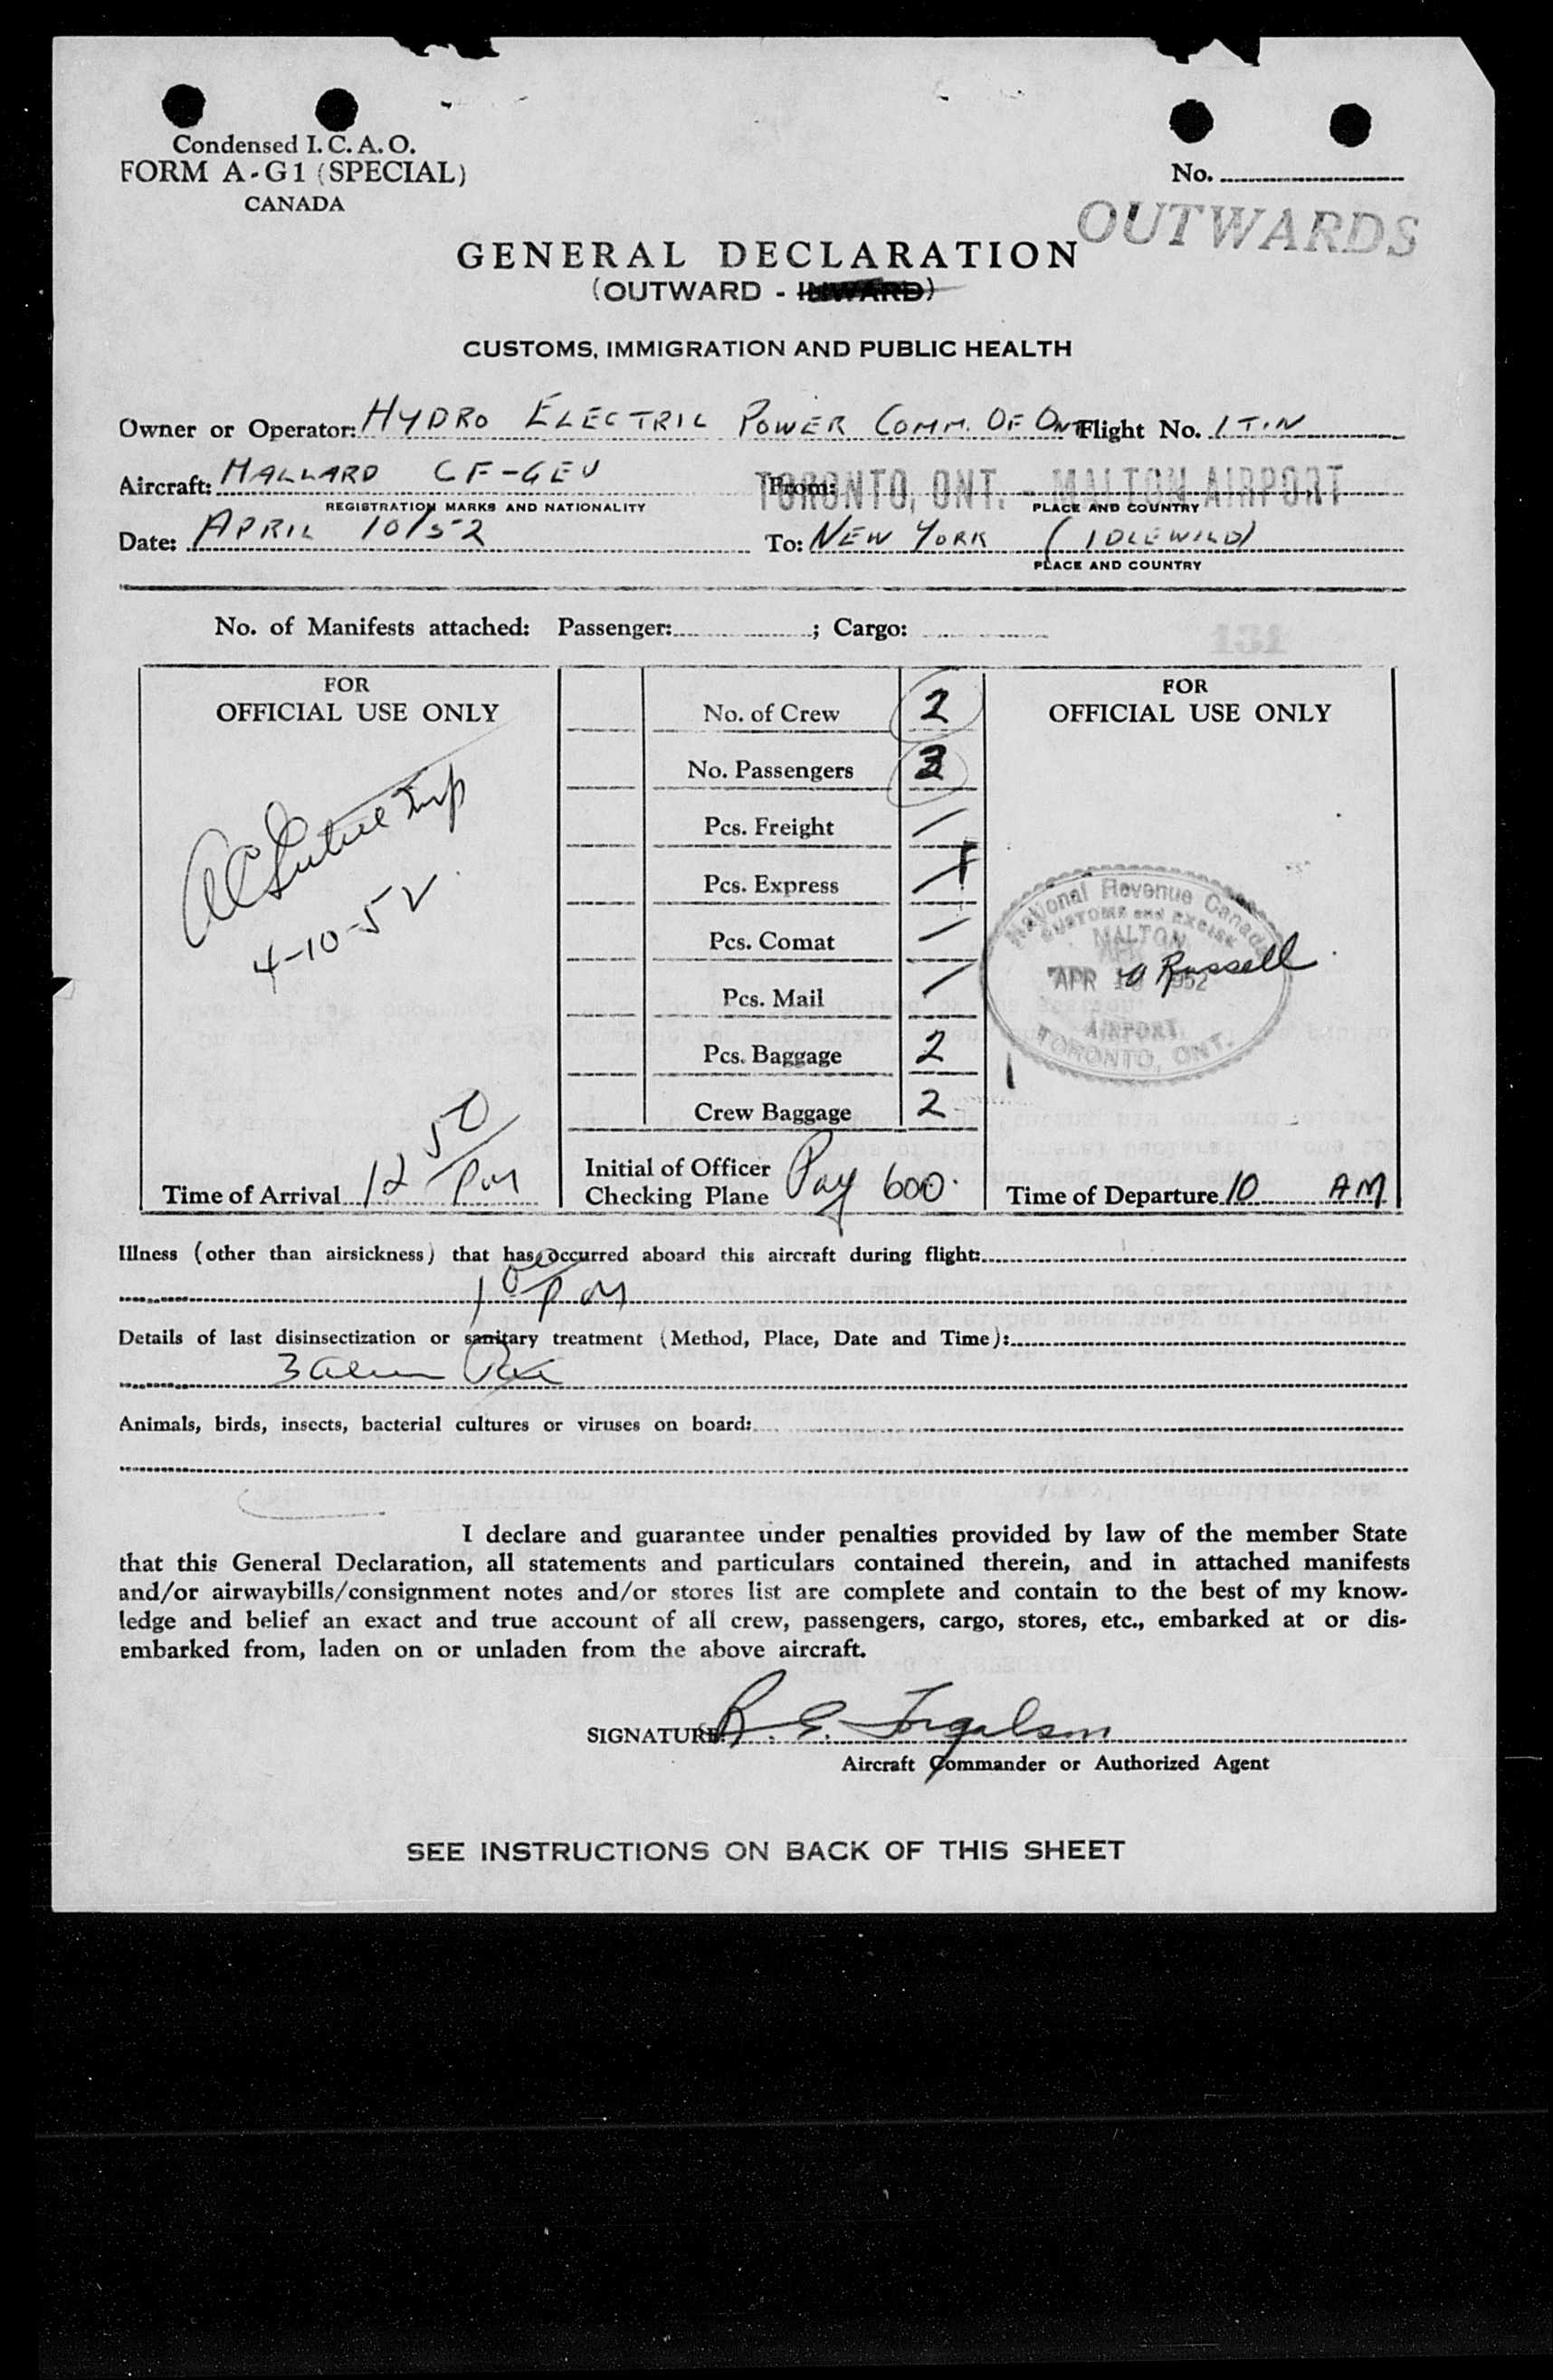 Condensed I.C.A.O.
FORM A-G1 (SPECIAL)
CANADA
No.
OUTWARDS
GENERAL DECLARATION
(OUTWARD - INWARD)
CUSTOMS, IMMIGRATION AND PUBLIC HEALTH
Owner or Operator: HYDRO ELECTRIC POWER COMM. OF ONT Flight No. ITIN
Aircraft: MALLARD CF-GEV From: TORONTO, ONT. - MALTON AIRPORT
REGISTRATION MARKS AND NATIONALITY PLACE AND COUNTRY
Date: APRIL 10/52 To: NEW YORK (IDLEWILD)
PLACE AND COUNTRY
No. of Manifests attached: Passenger: ; Cargo:
131
FOR
OFFICIAL USE ONLY
4-10-52
Time of Arrival 12 50 PM
No. of Crew 2
No. Passengers 3
Pcs. Freight /
Pcs. Express /
Pcs. Comat /
Pcs. Mail /
Pcs. Baggage 2
Crew Baggage 2
Initial of Officer
Checking Plane 600.
FOR
OFFICIAL USE ONLY
National Revenue Canada
CUSTOMS and EXCISE
MALTON
APR 10 1952
Russell
AIRPORT
TORONTO, ONT.
Time of Departure 10 AM
Illness (other than airsickness) that has occurred aboard this aircraft during flight:
1 00 PM
Details of last disinsectization or sanitary treatment (Method, Place, Date and Time):
3
Animals, birds, insects, bacterial cultures or viruses on board:
I declare and guarantee under penalties provided by law of the member State
that this General Declaration, all statements and particulars contained therein, and in attached manifests
and/or airwaybills/consignment notes and/or stores list are complete and contain to the best of my know-
ledge and belief an exact and true account of all crew, passengers, cargo, stores, etc., embarked at or dis-
embarked from, laden on or unladen from the above aircraft.
SIGNATURE: R. E.
Aircraft Commander or Authorized Agent
SEE INSTRUCTIONS ON BACK OF THIS SHEET